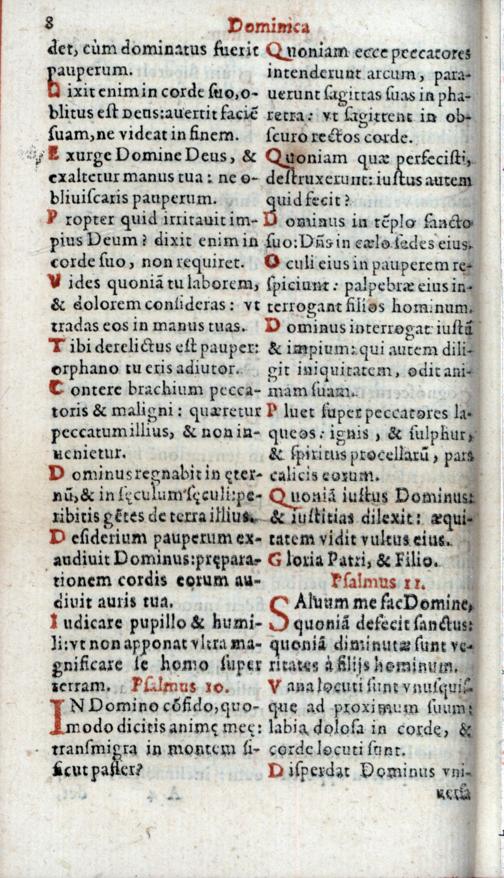 8
Dominica
det, cùm dominatus fuerit
pauperum.
Dixit enim in corde suo, o-
blitus est Deus: auertit faciẽ
suam, ne videat in finem.
Exurge Domine Deus, &
exaltetur manus tua: ne o-
bliuiscaris pauperum.
Propter quid irritauit im-
pius Deum? dixit enim in
corde suo, non requiret.
Vides quoniã tu laborem,
& dolorem consideras: vt
tradas eos in manus tuas.
Tibi derelictus est pauper:
orphano tu eris adiutor.
Contere brachium pecca-
toris & maligni: quæretur
peccatum illius, & non in-
uenietur.
Dominus regnabit in ęter-
nũ, & in sęculum sęculi: pe-
ribitis gẽtes de terra illius.
Desiderium pauperum ex-
audiuit Dominus: prępara-
tionem cordis eorum au-
diuit auris tua.
Iudicare pupillo & humi-
li: vt non apponat vltra ma-
gnificare se homo super
terram. Psalmus 10.
IN Domino cõfido, quo-
modo dicitis animę meę:
transmigra in montem si-
sicut passer?
Quoniam ecce peccatores
intenderunt arcum, para-
uerunt sagittas suas in pha-
retra: vt sagittent in ob-
scuro rectos corde.
Quoniam quæ perfecisti,
destruxerunt: iustus autem
quid fecit?
Dominus in tẽplo sancto
suo: Dñs in cælo sedes eius.
Oculi eius in pauperem re-
spiciunt: palpebræ eius in-
terrogant filios hominum.
Dominus interrogat iustũ
& impium: qui autem dili-
git iniquitatem, odit ani-
mam suam.
Pluet super peccatores la-
queos: ignis, & sulphur,
& spiritus procellarũ, pars
calicis eorum.
Quoniã iustus Dominus:
& iustitias dilexit: æqui-
tatem vidit vultus eius.
Gloria Patri, & Filio.
Psalmus 11.
SAluum me fac Domine,
quoniã defecit sanctus:
quoniã diminutæ sunt ve-
ritates à filijs hominum.
Vana locuti sunt vnusquis-
que ad proximum suum:
labia dolosa in corde, &
corde locuti sunt.
Disperdat Dominus vni-
uersa